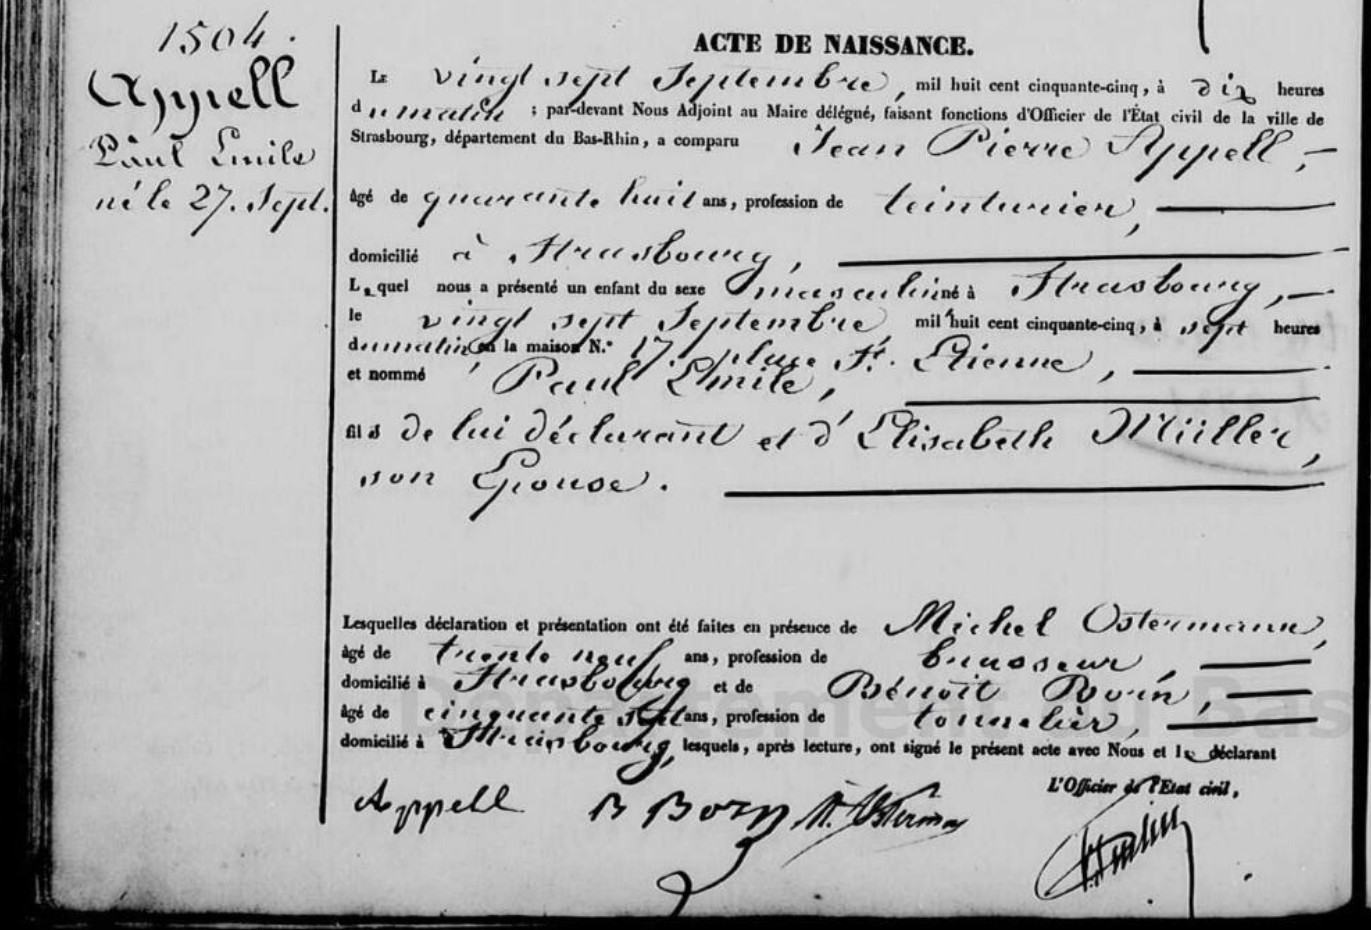 1504.
Appell
Paul Emile
né le 27. Sept.
ACTE DE NAISSANCE.
LE vingt sept Septembre, mil huit cent cinquante-cinq, à dix heures
du matin ; par-devant Nous Adjoint au Maire délégué, faisant fonctions d'Officier de l'État civil de la ville de
Strasbourg, département du Bas-Rhin, a comparu Jean Pierre Appell,
âgé de quarante huit ans, profession de teinturier,
domicilié à Strasbourg,
Lequel nous a présenté un enfant du sexe masculin né à Strasbourg,
le vingt sept Septembre mil huit cent cinquante-cinq, à sept heures
du matin, en la maison N.° 17. place St. Etienne,
et nommé Paul Emile,
fils de lui déclarant et d'Elisabeth Müller,
son Epouse.
Lesquelles déclaration et présentation ont été faites en présence de Michel Ostermann,
âgé de trente neuf ans, profession de brasseur,
domicilié à Strasbourg et de Bénoit Born,
âgé de cinquante sept ans, profession de tonnelier,
domicilié à Strasbourg, lesquels, après lecture, ont signé le présent acte avec Nous et le déclarant
L'Officier de l'Etat civil,
Appell B Born M. Osterman
Département du Bas